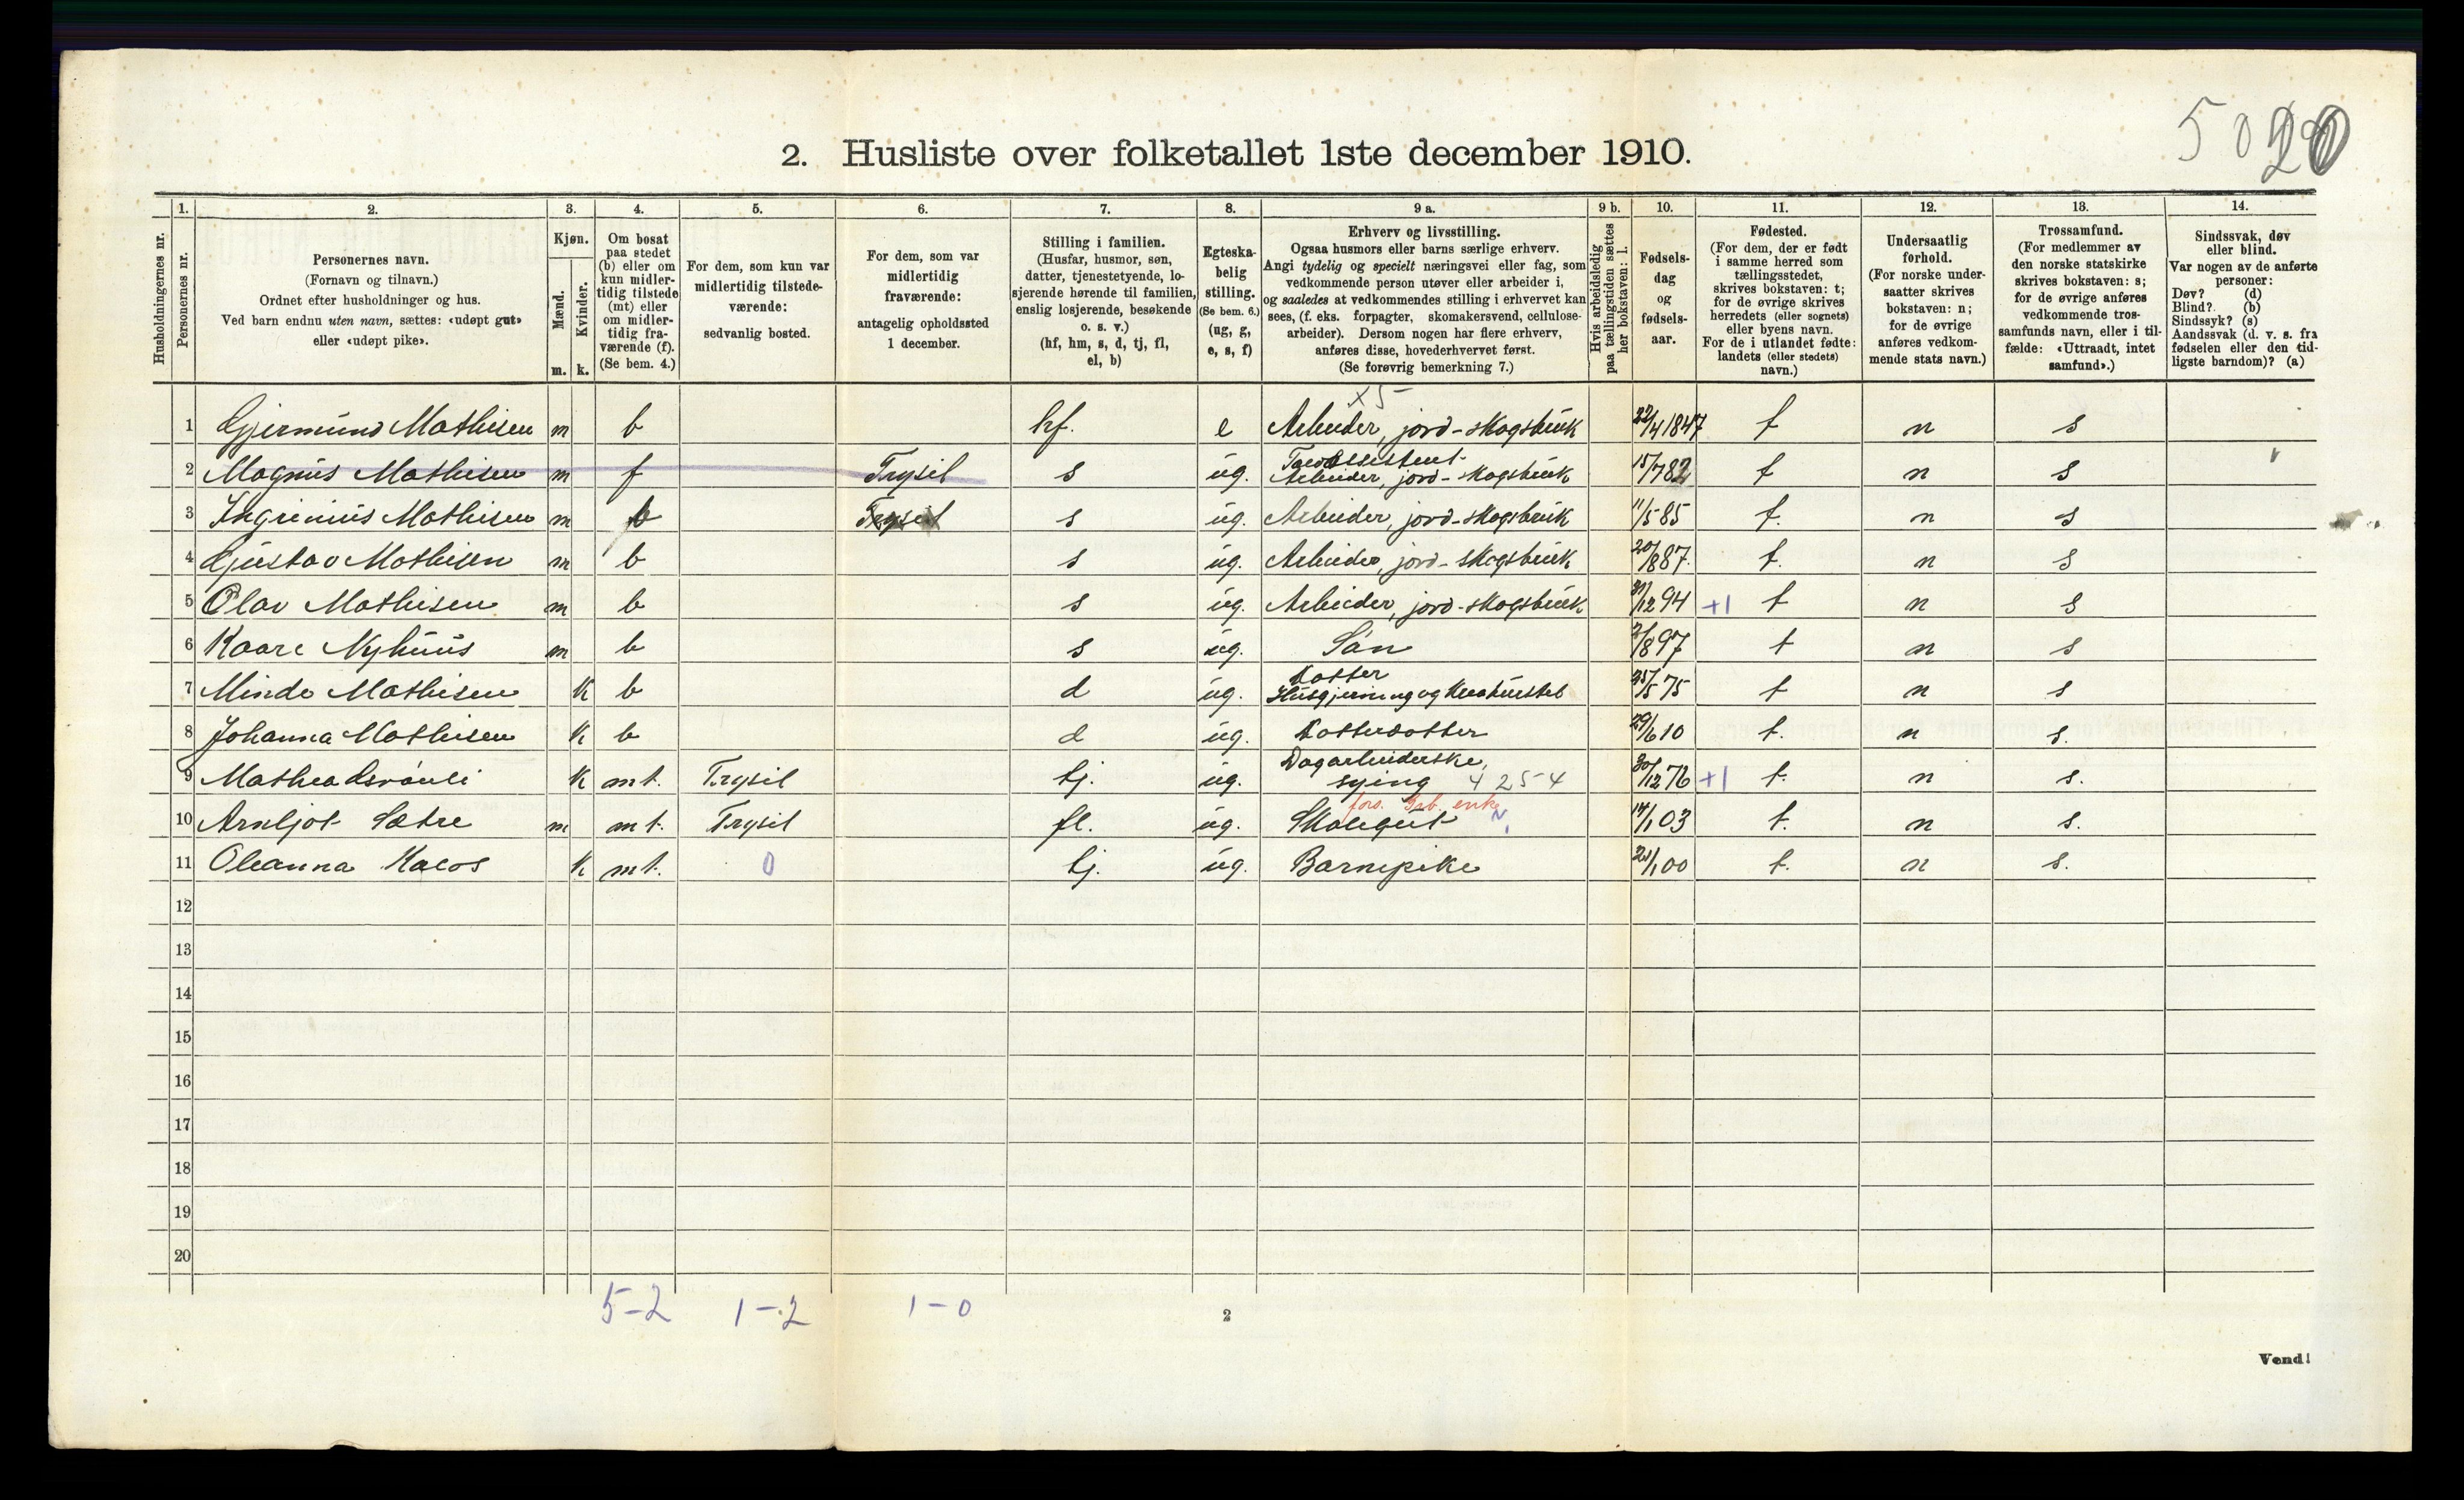 5020
2. Husliste over folketallet 1ste december 1910.
1. 2. 3. 4. 5. 6. 7. 8. 9 a. 9 b. 10. 11. 12. 13. 14.
Husholdningernes nr.
Personernes nr.
Personernes navn.
(Fornavn og tilnavn.)
Ordnet efter husholdninger og hus.
Ved barn endnu uten navn, sættes: «udøpt gut»
eller «udøpt pike».
Kjøn.
Mænd.
Kvinder.
m. k.
Om bosat
paa stedet
(b) eller om
kun midler-
tidig tilstede
(mt) eller
om midler-
tidig fra-
værende (f).
(Se bem. 4.)
For dem, som kun var
midlertidig tilstede-
værende:
sedvanlig bosted.
For dem, som var
midlertidig
fraværende:
antagelig opholdssted
1 december.
Stilling i familien.
(Husfar, husmor, søn,
datter, tjenestetyende, lo-
sjerende hørende til familien,
enslig losjerende, besøkende
o. s. v.)
(hf, hm, s, d, tj, fl,
el, b)
Egteska-
belig
stilling.
(Se bem. 6.)
(ug, g,
e, s, f)
Erhverv og livsstilling.
Ogsaa husmors eller barns særlige erhverv.
Angi tydelig og specielt næringsvei eller fag, som
vedkommende person utøver eller arbeider i,
og saaledes at vedkommendes stilling i erhvervet kan
sees, (f. eks. forpagter, skomakersvend, cellulose-
arbeider). Dersom nogen har flere erhverv,
anføres disse, hovederhvervet først.
(Se forøvrig bemerkning 7.)
Hvis arbeidsledig
paa tællingstiden sættes
her bokstaven: l.
Fødsels-
dag
og
fødsels-
aar.
Fødested.
(For dem, der er født
i samme herred som
tællingsstedet,
skrives bokstaven: t;
for de øvrige skrives
herredets (eller sognets)
eller byens navn.
For de i utlandet fødte:
landets (eller stedets)
navn.)
Undersaatlig
forhold.
(For norske under-
saatter skrives
bokstaven: n;
for de øvrige
anføres vedkom-
mende stats navn.)
Trossamfund.
(For medlemmer av
den norske statskirke
skrives bokstaven: s;
for de øvrige anføres
vedkommende tros-
samfunds navn, eller i til-
fælde: «Uttraadt, intet
samfund».)
Sindssvak, døv
eller blind.
Var nogen av de anførte
personer:
Døv? (d)
Blind? (b)
Sindssyk? (s)
Aandssvak (d. v. s. fra
fødselen eller den tid-
ligste barndom)? (a)
x5
1 Gjermund Mathisen m b hf. e Arbeider, jord-skogsbruk 22/4 1847 t n s
2 Magnus Mathisen m f Trysil s ug. Arbeider, jord-skogsbruk 15/7 82 t n s
3 Ingrinius Mathisen m b Trysil s ug. Arbeider, jord-skogsbruk 11/5 85 t. n s
4 Gustav Mathisen m b s ug. Arbeider, jord-skogsbruk 20/8 87. t. n s
5 Olav Mathisen m b s ug. Arbeider, jord-skogsbruk 31/12 94 +1 t n s
6 Kaare Nyhuus m b s ug. Søn 2/8 97 t n s
Datter
7 Minda Mathisen k b d ug. Husgjerning og Kreaturstel 25/5 75 t n s
8 Johanna Mathisen k b d ug. Datterdatter 29/6 10 t. n s.
Dagarbeiderske,
9 Mathea k mt. Trysil tj. ug. sying 4 25-4 30/12 76 +1 t. n s.
fors. Arb. enke
10 Arnljot Sætre m mt. Trysil fl. ug. Skolegut 14/1 03 t. n s.
11 Oleanna k mt. 0 tj. ug. Barnepike 21/1 00 t. n s.
12
13
14
15
16
17
18
19
20
5-2 1-2 1-0
2
Vend!